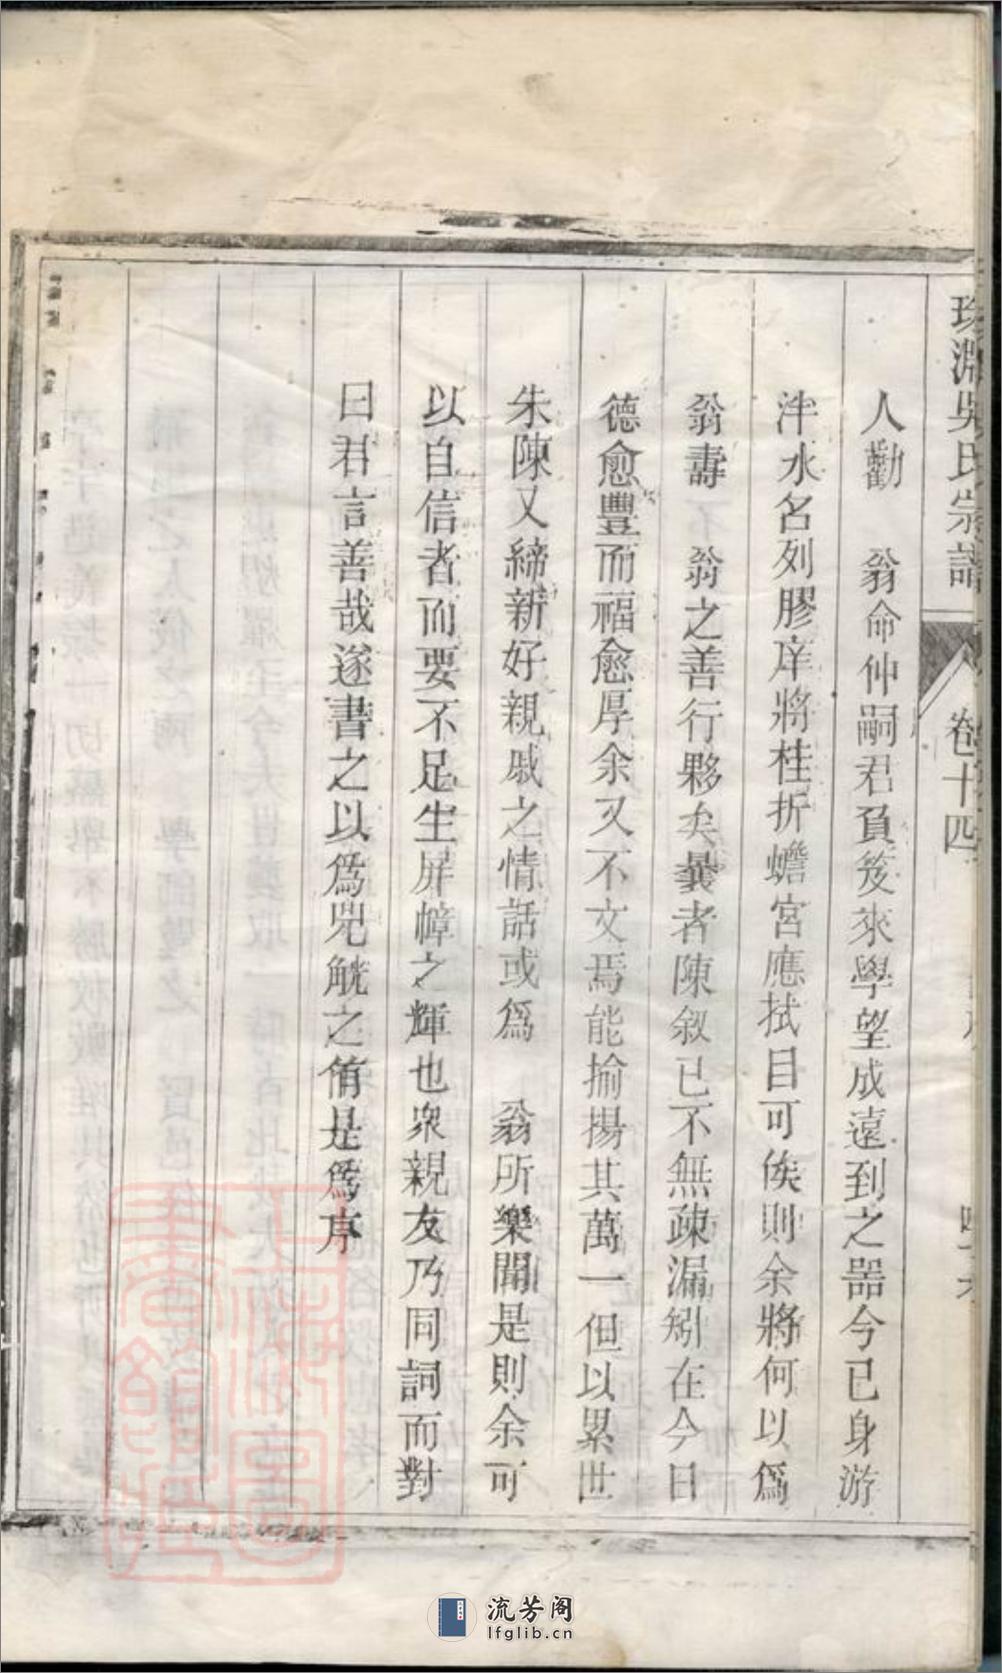 珠淵吳氏宗譜 卷十四
人勸 翁命仲嗣君負笈來學望成遠到之器今已身游
泮水名列膠庠將桂折蟾宮應拭目可俟則余將何以爲
翁壽 翁之善行夥矣曩者陳敘已不無疎漏矧在今日
德愈豐而福愈厚余又不文焉能揄揚其萬一但以累世
朱陳又締新好親戚之情話或爲 翁所樂聞是則余可
以自信者而要不足生屏幛之輝也衆親友乃同詞而對
曰君言善哉遂書之以爲兕觥之侑是爲序
上海圖書館藏
流芳阁
lfglib.cn